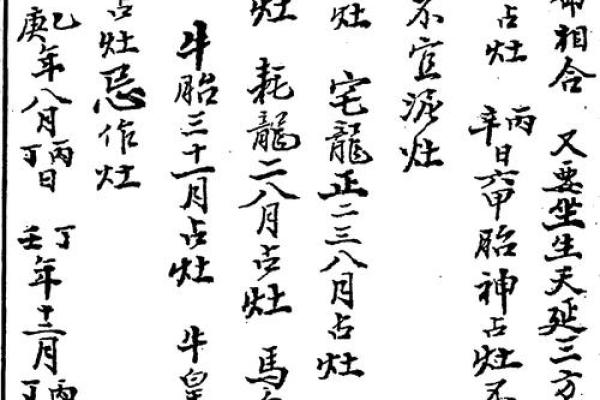 相合 又要坐生天延三方
占灶 丙辛日六甲胎神占灶不
不宜泥灶
灶 宅龍正二三八月占灶
灶 耗龍二八月占灶 馬
牛胎三十一月占灶 牛皇
占灶忌作灶
乙庚年八月丙丁日 丁壬年十二月丙丁